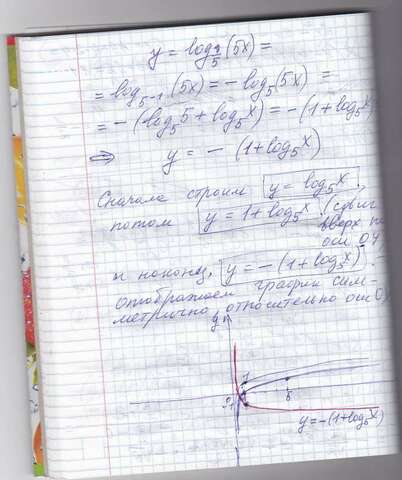 y = log_{1/5}(5x) =
= log_{5^{-1}}(5x) = - log_5(5x) =
= - (log_5 5 + log_5 x) = - (1 + log_5 x)
⇒ y = - (1 + log_5 x)
Сначала строим y = log_5 x,
потом y = 1 + log_5 x (сдвиг
вверх по
оси OY
и наконец, y = - (1 + log_5 x) -
отображаем график сим-
метрично относительно оси
y
1
5
y = -(1+log_5 x)